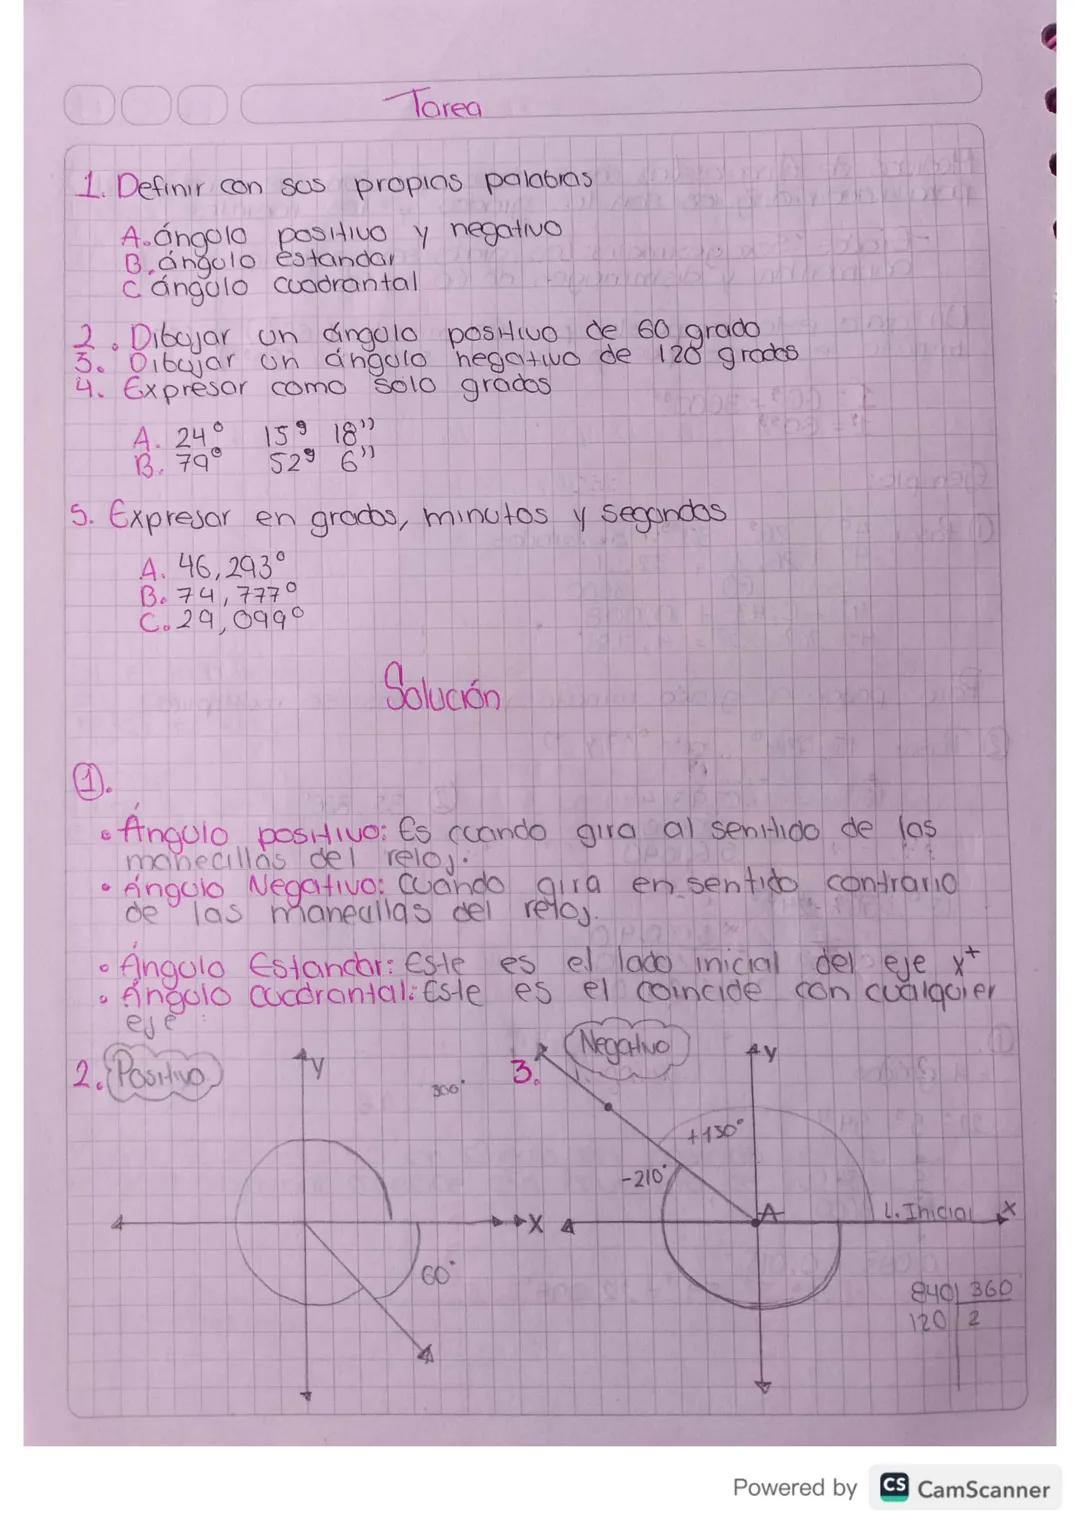 Tarea
1. Definir con sus propias palabras
A. ángulo positivo y negativo
B. ángulo estandar
C ángulo cuadrantal
2. Dibujar un ángulo positivo de 60 grado
3. Dibujar un ángulo negativo de 120 grados
4. Expresar como solo grados
A. 24° 15' 18''
B. 79° 52' 6''
5. Expresar en grados, minutos y segundos
A. 46,293°
B. 74,777°
C. 29,099°
Solución
1.
• Ángulo positivo: Es cuando gira al sentido de las
manecillas del reloj.
• Ángulo Negativo: Cuando gira en sentido contrario
de las manecillas del reloj.
• Ángulo Estandar: Este es el lado inicial del eje x+
• Ángulo Cuadrantal: Este es el coincide con cualquier
eje
2. Positivo
y
300°
X
60°
3. Negativo
y
+150°
-210°
A
L. Inicial
X
840 360
120 2
Powered by CS CamScanner